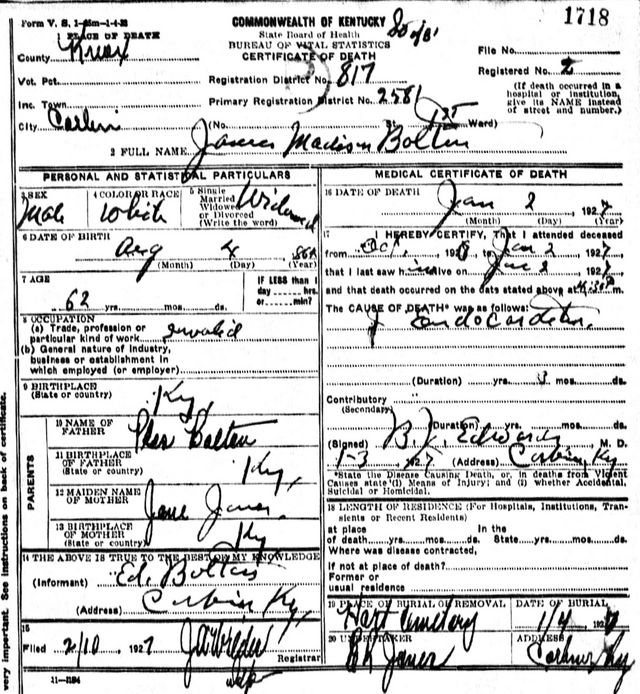 Form V. S. 1-
1718
PLACE OF DEATH
COMMONWEALTH OF KENTUCKY
State Board of Health
BUREAU OF VITAL STATISTICS
CERTIFICATE OF DEATH
County Knox
File No.
Vot. Pct.
Registration District No. 817
Registered No. 2
Inc. Town
Primary Registration District No. 2581
(If death occurred in a hospital or institution, give its NAME instead of street and number.)
City Corbin (No. St. 1st Ward)
2 FULL NAME James Madison Bolten
PERSONAL AND STATISTICAL PARTICULARS
3 SEX Male
4 COLOR OR RACE White
5 Single Married Widowed or Divorced (Write the word) Widowed
6 DATE OF BIRTH Aug 4
(Month) (Day) (Year)
7 AGE 62 yrs. mos. ds.
IF LESS than 1 day hrs. or min?
8 OCCUPATION
(a) Trade, profession or particular kind of work invalid
(b) General nature of industry, business or establishment in which employed (or employer)
9 BIRTHPLACE (State or country) Ky,
PARENTS
10 NAME OF FATHER Bolten
11 BIRTHPLACE OF FATHER (State or country) Ky,
12 MAIDEN NAME OF MOTHER Jane Jones
13 BIRTHPLACE OF MOTHER (State or country) Ky
14 THE ABOVE IS TRUE TO THE BEST OF MY KNOWLEDGE
(Informant) Ed. Bolten
(Address) Corbin Ky,
15 Filed 2/10 1927
Registrar
11-1184
very important. See instructions on back of certificate.
MEDICAL CERTIFICATE OF DEATH
16 DATE OF DEATH Jan 2 1927
(Month) (Day) (Year)
17 I HEREBY CERTIFY, That I attended deceased
from Oct. 192 to Jan 2 1927
that I last saw him alive on Jan 2 1927
and that death occurred on the date stated above at
The CAUSE OF DEATH* was as follows:
Endocarditis,
(Duration) yrs. 3 mos. ds.
Contributory (Secondary)
(Duration) yrs. mos. ds.
(Signed) B. J. Edwards M. D.
1-3 1927 (Address) Corbin, Ky
*State the Disease Causing Death, or, in deaths from Violent Causes state (1) Means of Injury; and (2) whether Accidental, Suicidal or Homicidal.
18 LENGTH OF RESIDENCE (For Hospitals, Institutions, Transients or Recent Residents)
at place of death yrs. mos. ds. In the State yrs. mos. ds.
Where was disease contracted,
if not at place of death?
Former or usual residence
19 PLACE OF BURIAL OR REMOVAL Hart Cemetery
DATE OF BURIAL 1/4 1927
20 UNDERTAKER Jones
ADDRESS Corbin Ky